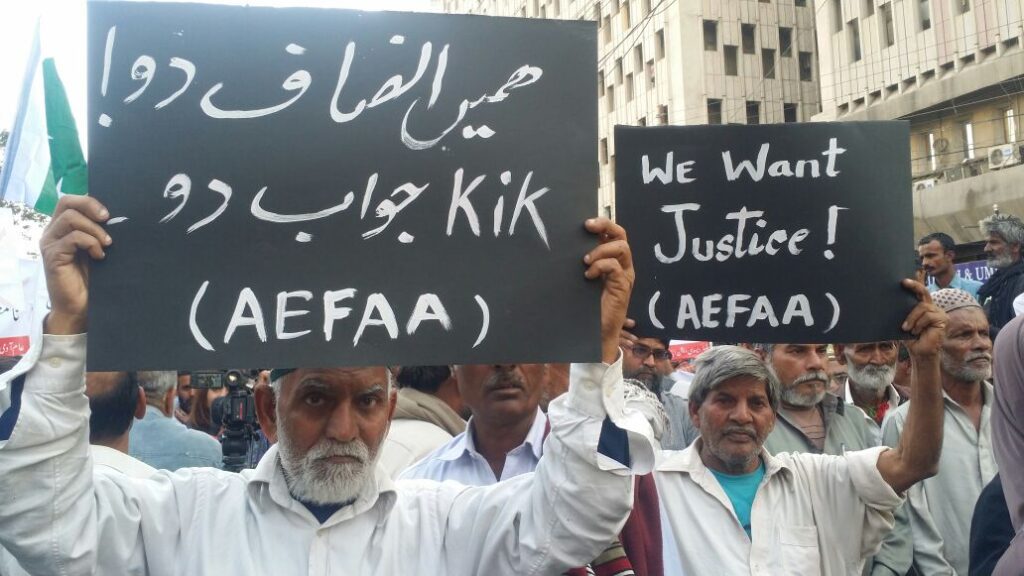 ہمیں انصاف دو!
KiK جواب دو ۔
(AEFAA)
We Want
Justice!
(AEFAA)
L & UM
عام آدمی